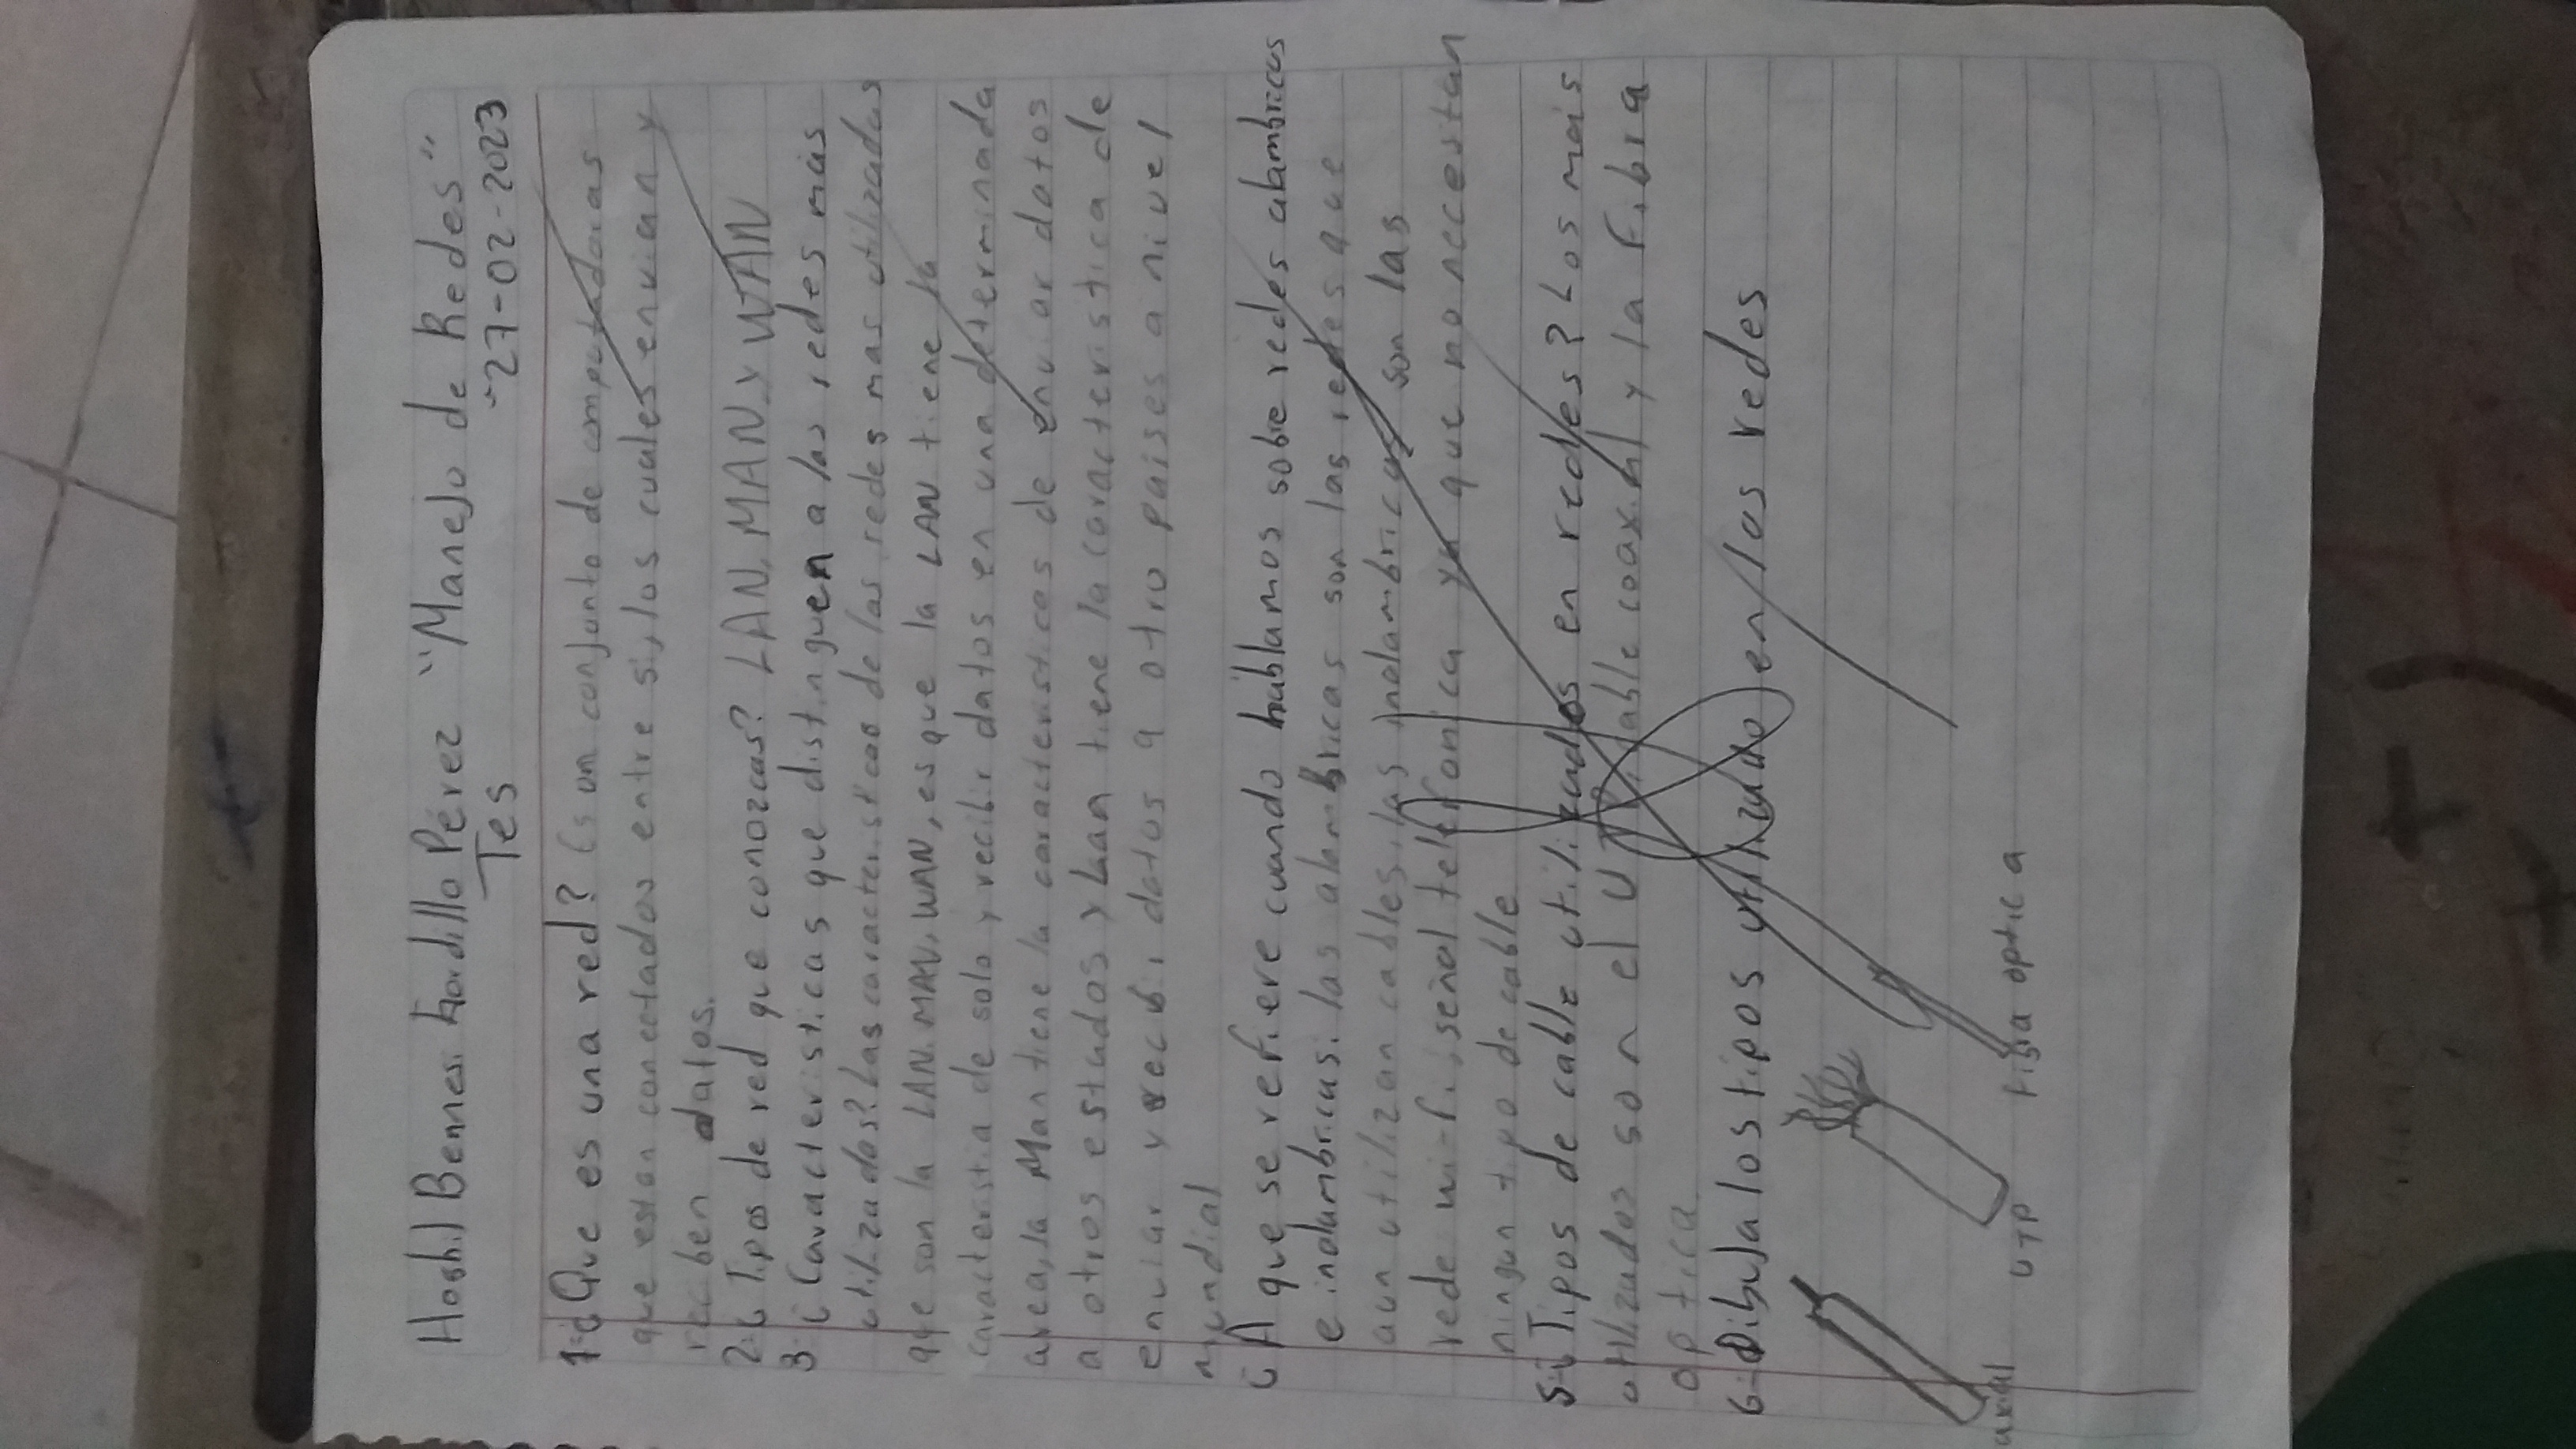 Hoshil Bennesi Gordillo Pérez "Manejo de Redes"
Tes 27-02-2023
1.¿Que es una red? Es un conjunto de computadoras
que estan conectados entre si, los cuales envian y
reciben datos.
2.¿Tipos de red que conozcas? LAN, MAN y WAN
3 ¿Caracteristicas que distinguen a las redes mas
utilizadas? Las caracteristicas de las redes mas utilizadas
que son la LAN, MAN, WAN, es que la LAN tiene la
caracterstia de solo y recibir datos en una determinada
area, la Man tiene la caracteristicas de enviar datos
a otros estados y Lan tiene la caracteristica de
enviar y recibi datos a otro paises a nivel
mundial
¿A que se refiere cuando hablamos sobre redes alambricas
e inalambricas. las alambricas son las redes que
aun utilizan cables, las inalambricas son las
rede wi-fi, señal telefonica ya que no necestan
ningun tipo de cable
5-¿Tipos de cable utilizados en redes? Los mas
utilizados son el UTP, cable coaxial y la Fibra
optica.
6-Dibuja los tipos utilizado en las redes
axial UTP fibra optica